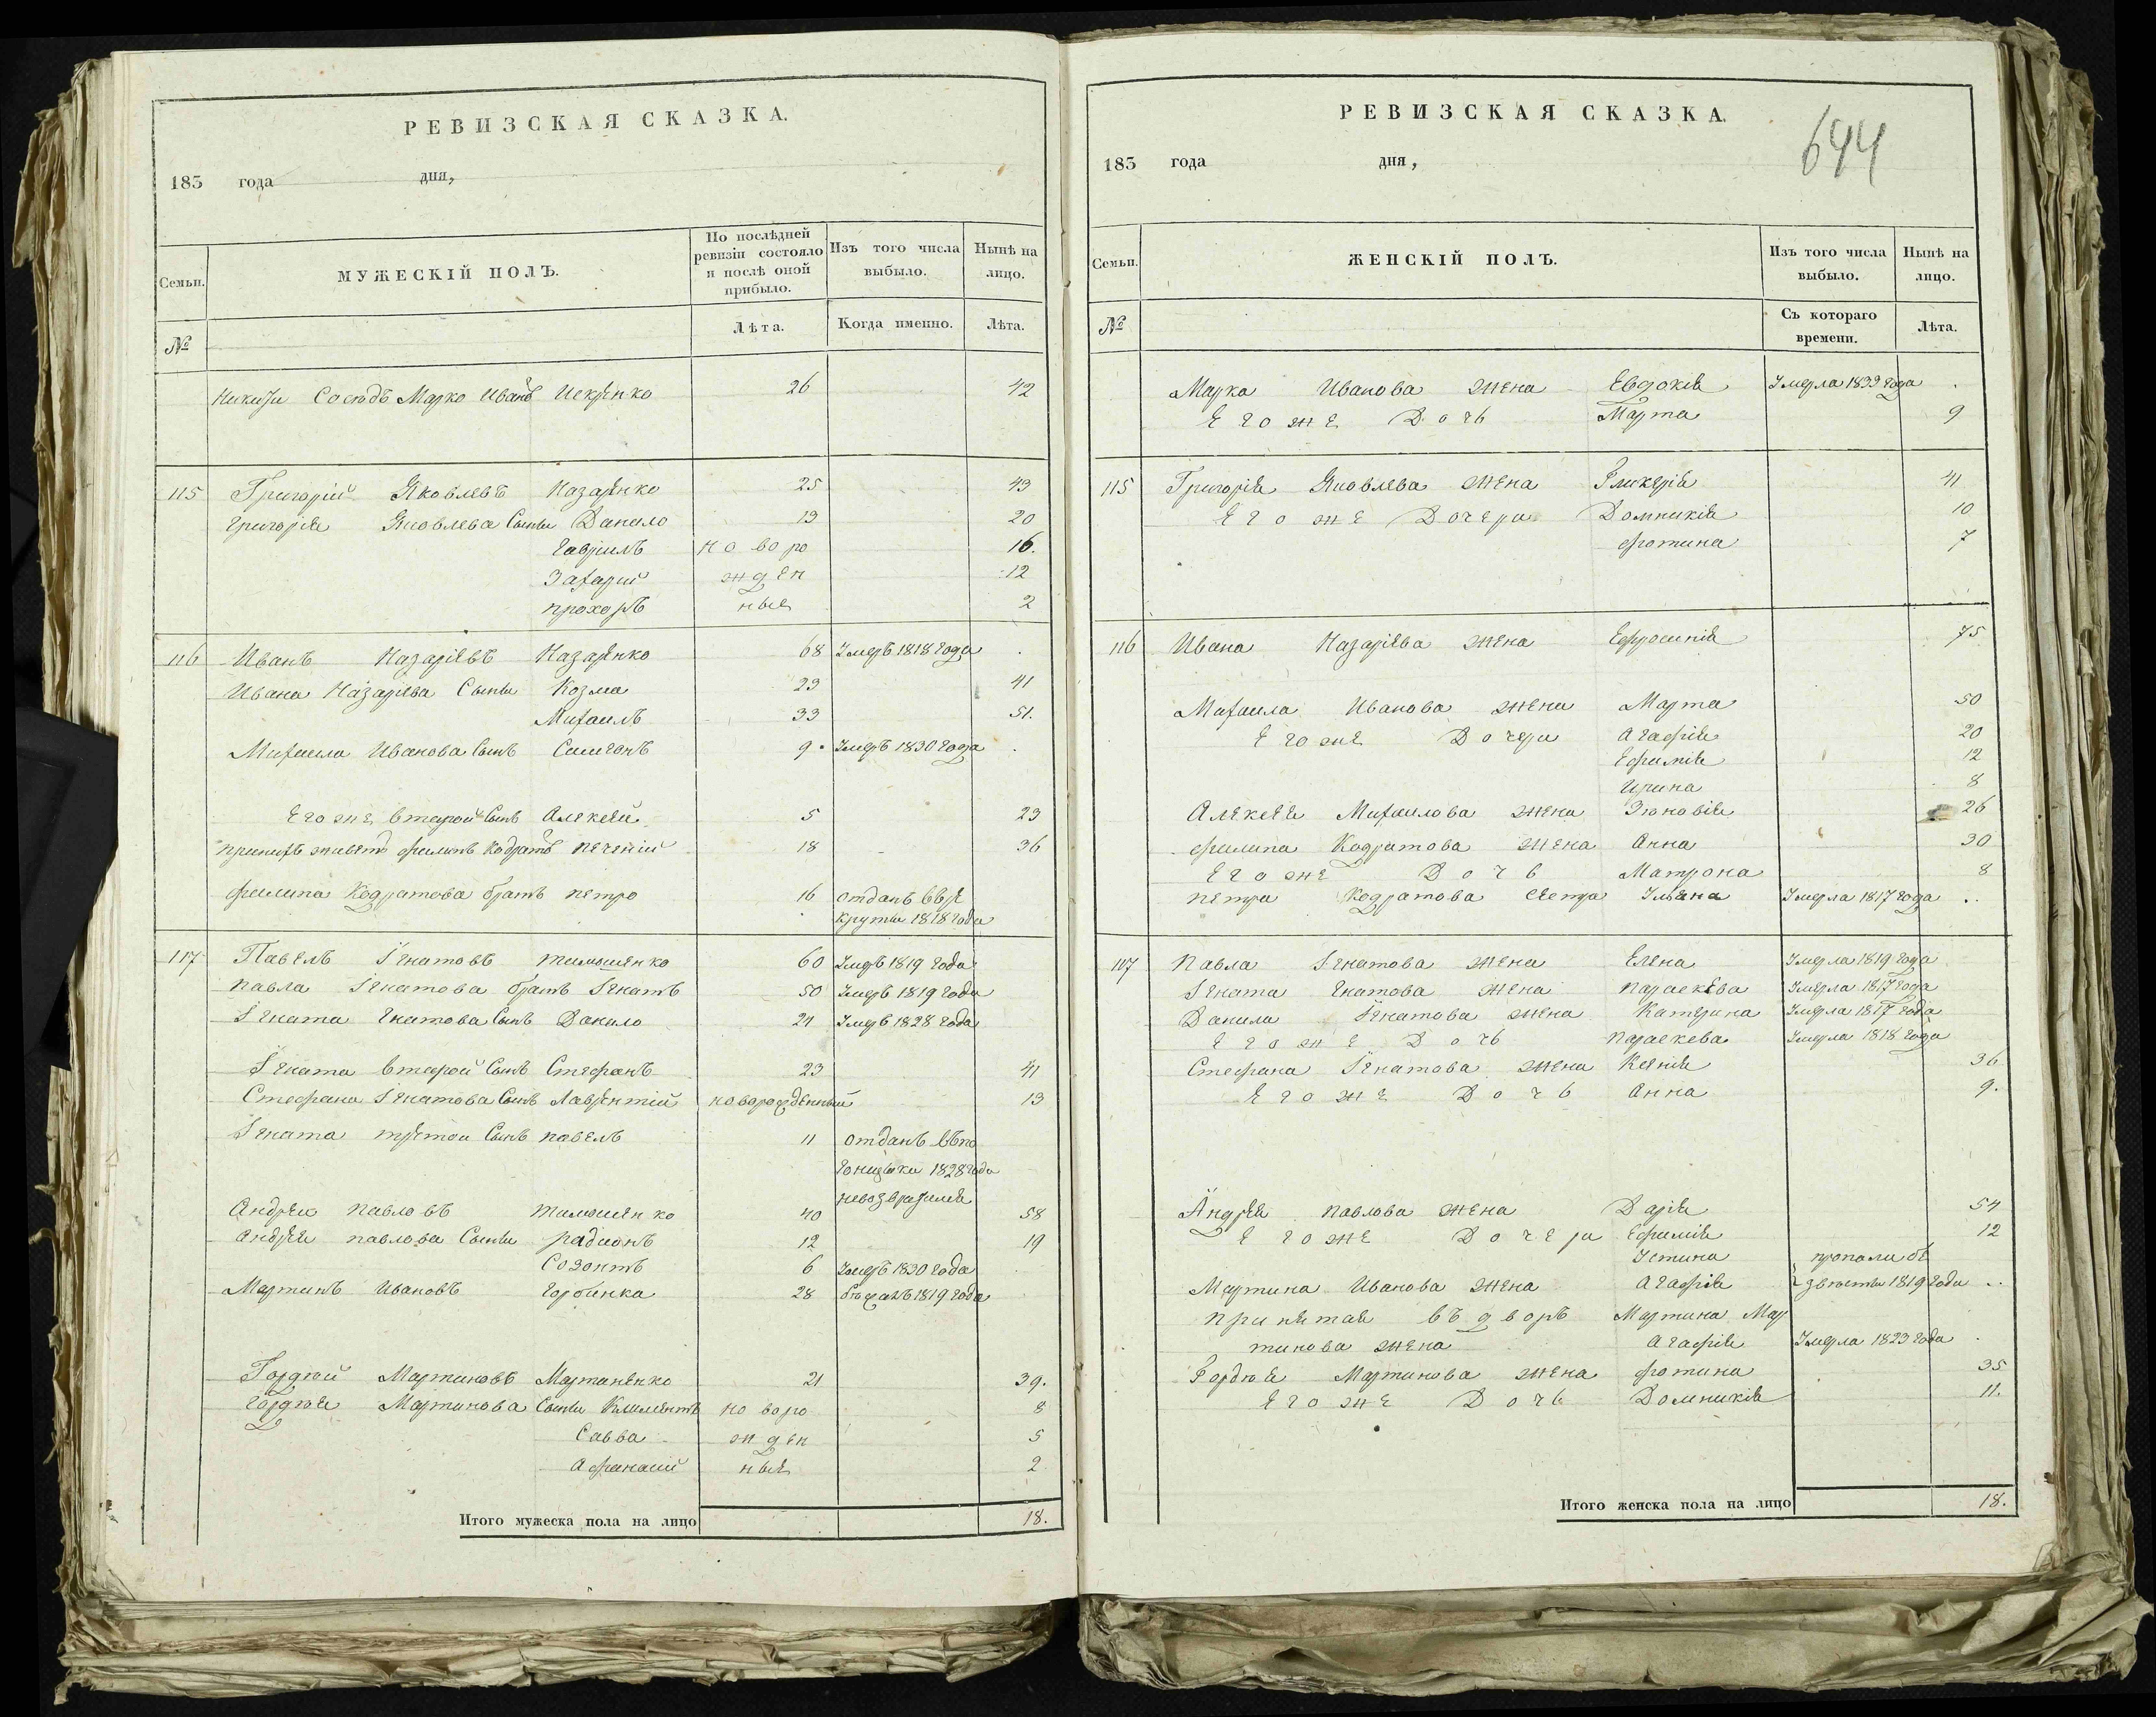 РЕВИЗСКАЯ СКАЗКА.
183 года дня,
Семьи.
МУЖЕСКІЙ ПОЛЪ.
По послѣдней ревизіи состояло и послѣ оной прибыло.
Изъ того числа выбыло.
Нынѣ на лицо.
№
Лѣта.
Когда именно.
Лѣта.
Сосѣдъ Марко Ивановъ 26 42
115 Григорій Яковлевъ Назаренко 25 43
Григорія Яковлева Сыны Данило 13 20
Гаврилъ новоро 16.
Захарій жден 12
Прохоръ ные 2
116 Иванъ Назаріевъ Назаренко 68 Умеръ 1818 года
Ивана Назаріева Сыны Козма 23 41
Михаилъ 33 51.
Михаила Иванова Сынъ Симеонъ 9 Умеръ 1830 года
Егоже второй Сынъ Алексей 5 23
филипъ 18 36
филипа Кодратова братъ петро 16 отданъ въ ре
круты 1818 года
117 Павелъ Игнатовъ тимошенко 60 Умеръ 1819 года
Павла Игнатова братъ Игнатъ 50 Умеръ 1819 года
Игната Игнатова Сынъ Данило 21 Умеръ 1828 года
Игната второй Сынъ Стефанъ 23 41
Стефана Игнатова Сынъ Лаврентій новорожденный 13
Игната третои Сынъ павелъ 11 отданъ въ по
гонщики 1828 года
невозвратился
Андреи павловъ тимошенко 40 58
Андрея павлова Сыны радионъ 12 19
Созонтъ 6 Умеръ 1830 года
Мартинъ Ивановъ Горбинка 28 бежалъ 1819 года
Гордѣй Мартиновъ Мартиненко 21 39.
Гордѣя Мартинова Сыны Климентъ новоро 8
Савва жден 5
Афанасий ные 2
Итого мужеска пола на лицо 18.
РЕВИЗСКАЯ СКАЗКА.
644
183 года дня,
Семьи.
ЖЕНСКІЙ ПОЛЪ.
Изъ того числа выбыло.
Нынѣ на лицо.
№
Съ котораго времени.
Лѣта.
Марка Иванова жена Евдокия Умерла 1833 года
Егоже Дочь Марта 9
115 Григорія Яковлева жена Гликерія 41
Егоже Дочери Домникія 10
фотина 7
116 Ивана Назаріева жена Ефросинія 75
Михаила Иванова жена Марта 50
Егоже Дочери Агафія 20
Ефимія 12
Ирина 8
Алексея Михаилова жена Зіновія 26
филипа Кодратова жена Анна 30
Егоже Дочь Матрона 8
петра Кодратова сестра Ульяна Умерла 1817 года
117 Павла Игнатова жена Елена Умерла 1819 года
Игната Игнатова жена параскева Умерла 1817 года
Данила Игнатова жена Катерина Умерла 1817 года
Егоже Дочь параскева Умерла 1818 года
Стефана Игнатова жена Ксенія 36
Егоже Дочь Анна 9.
Андрея павлова жена Дарія 54
Егоже Дочери Ефимія 12
Устина пропали бе
Мартина Иванова жена Агафія звѣстны 1819 года
принятая въ дворъ Мартина Мар
тинова жена Агафія Умерла 1823 года
Гордѣя Мартинова жена фотина 35
Егоже Дочь Домникія 11.
Итого женска пола на лицо 18.